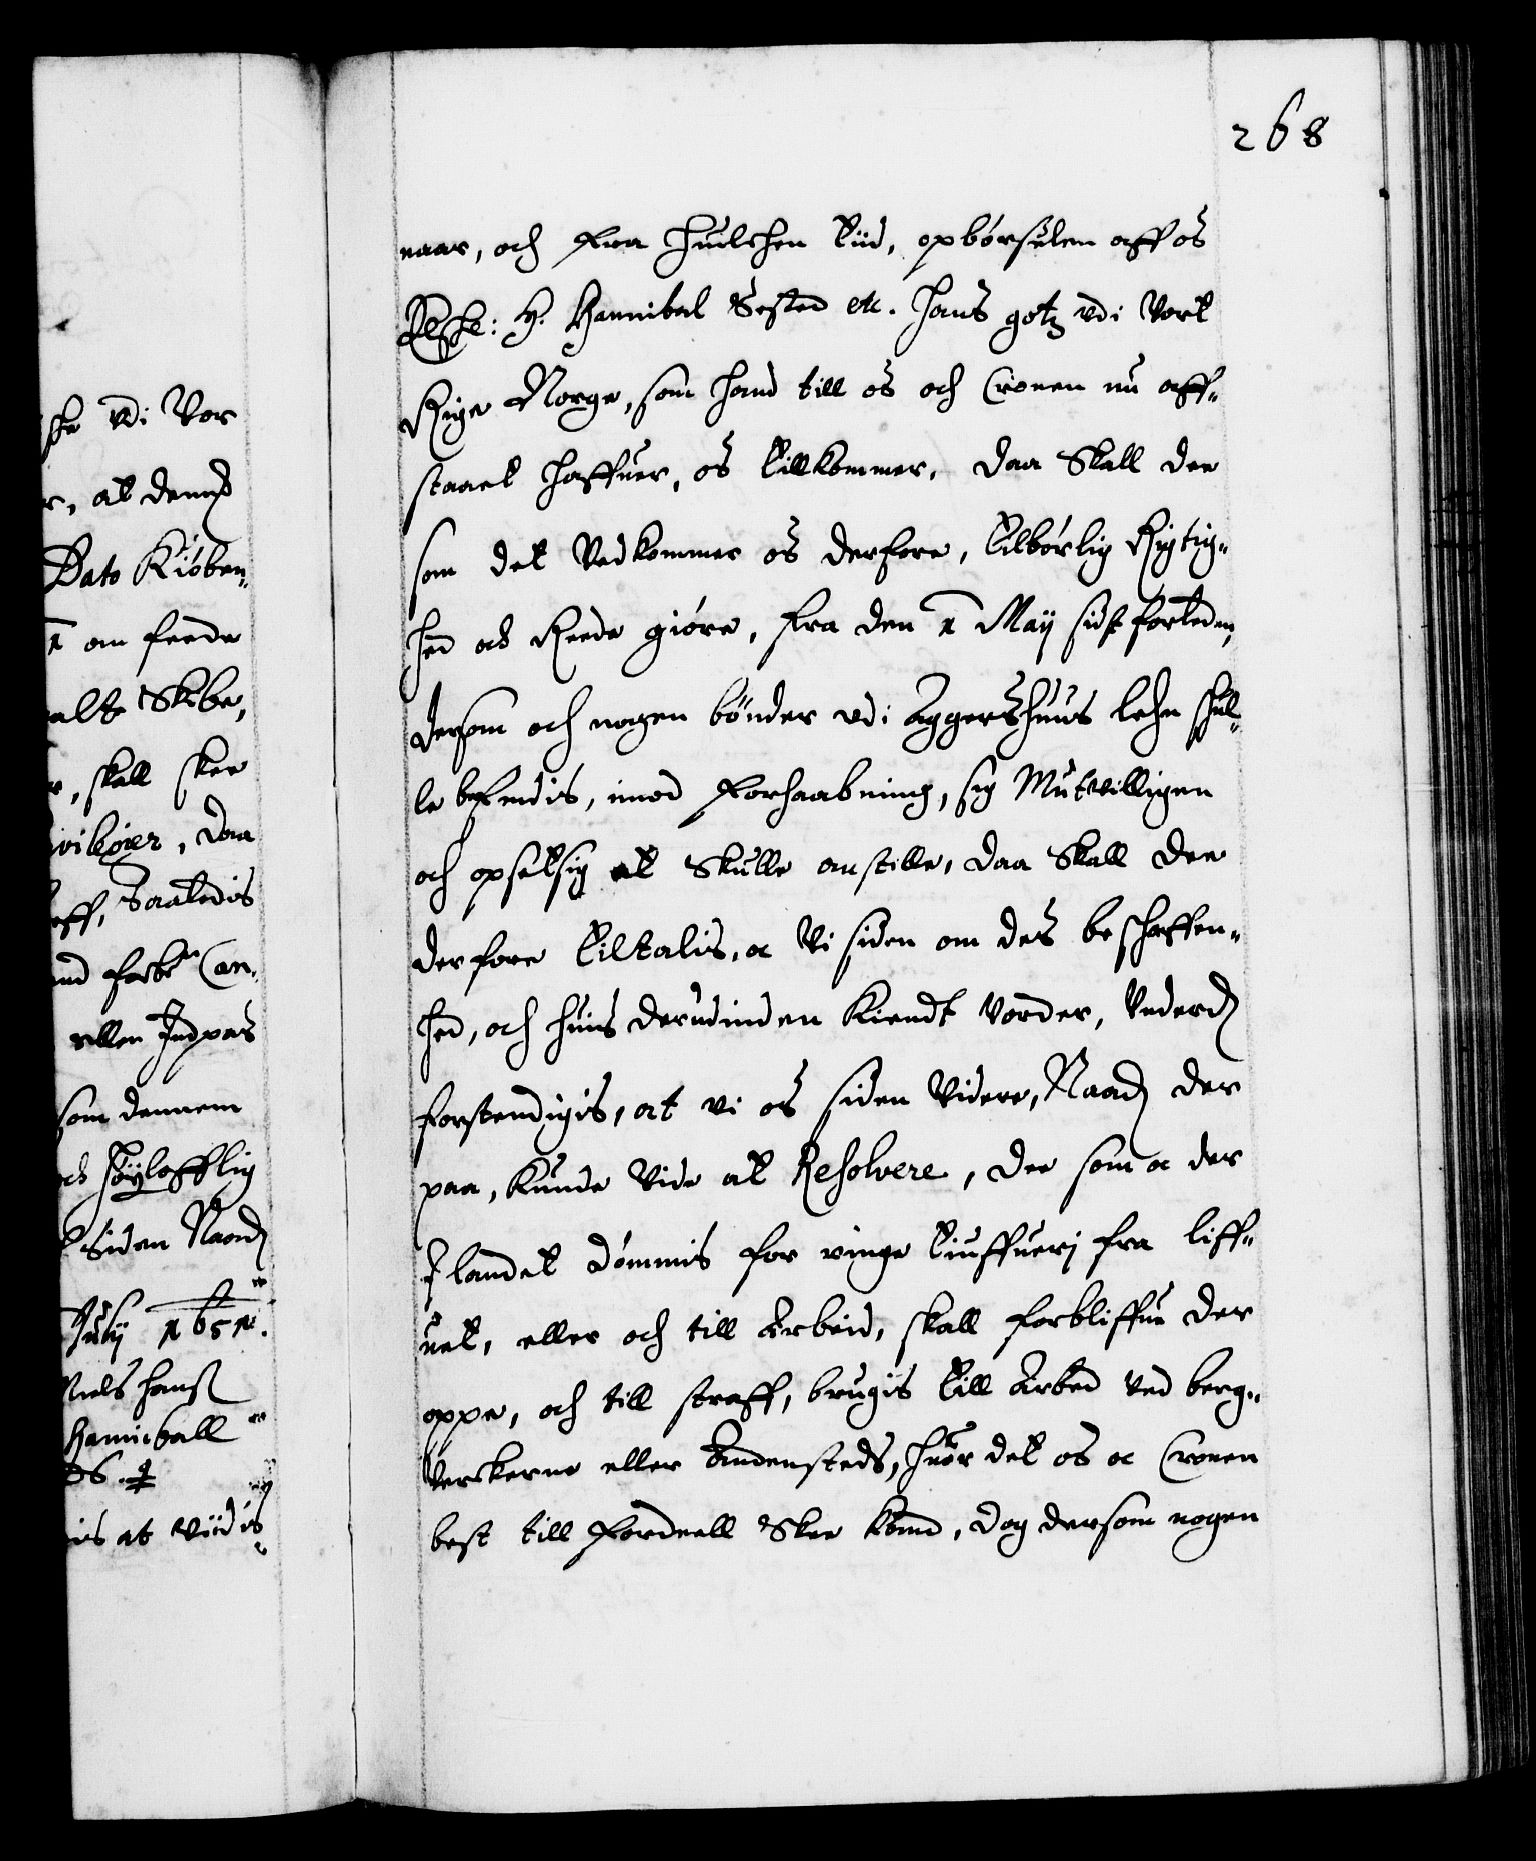 268
naar, och fra huilchen tiid, opbørselen aff os
Elske: H. Hannibal Sested etc. hans gotz vdi Vort
Rige Norge, som hand till os och Cronen nu aff-
staaet haffuer, os tillkommer, daa Skall der
som det Vedkommer os derfore, tilbørlig Rigtig-
hed och Reede giøre, fra den 1 Maij sidst forleden,
dersom och nogen bønder vdi Aggershuus lehn skul-
le befindis, imod Forhaabning, sig Mutvilligen
och opsetsig at Skulle anstille, daa Skall de
derfore tiltalis, oc Vi siden om des beschaffen-
hed, och huis derudinden Kiendt Vorder, Vnderd:
forstendigis, at vi os siden Videre, Naad: der
paa, kunde Vide at Resolvere, de som oc der
J landet dømmis for ringe tiuffueri fra liff-
uet, eller och till Arbeid, skall forbliffue der
oppe, och till straff, brugis till Arbed ved berg-
Verckerne eller Andensteds, huor det os oc Cronen
best till Fordeell Skee kand, dog dersom nogen
ske vdi Vor
r, at dennd
Dato Kiøben-
1 om feede
alte Skibe,
r, skall skee
ivilegier, daa
eff, Saaledis
nd forbte Can-
ellen Indpas
som dennem
och høylofflig
siden Naad:
Julij 1651.
Niels Hanß
Hanniball
is at Viidis